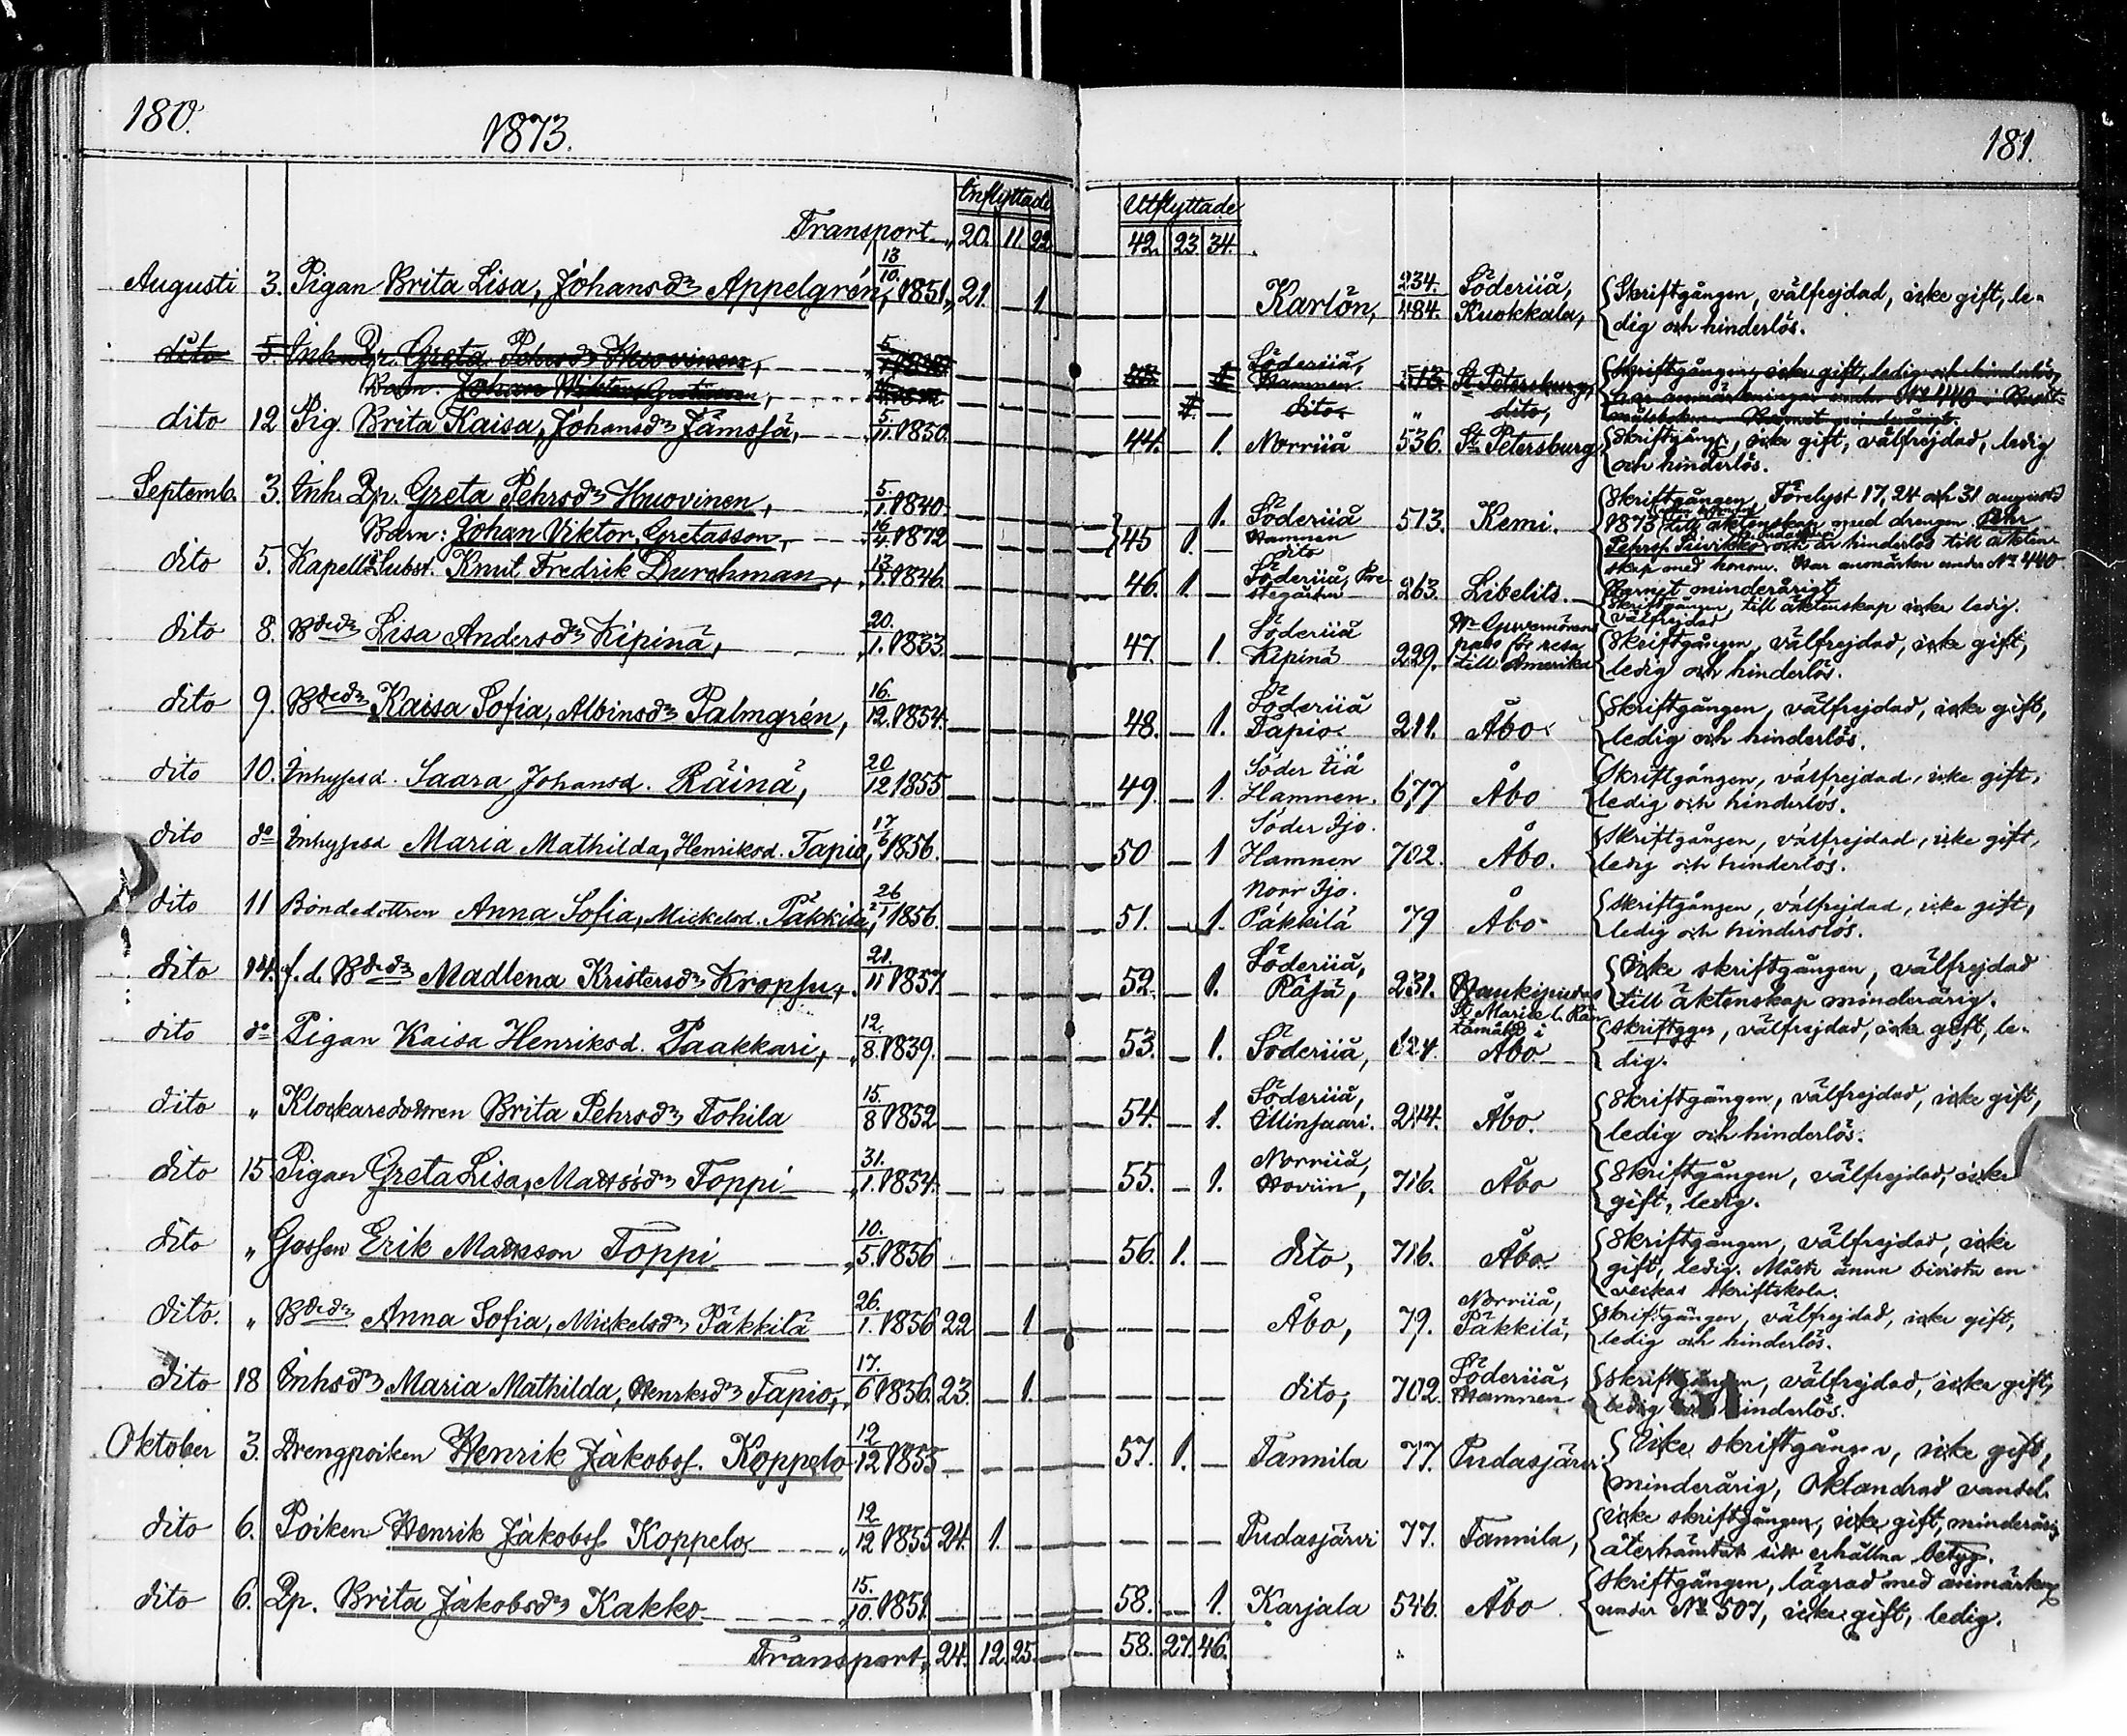 180.
1873.
181.
Inflyttade
Utflyttade
Transport 20. 11. 22. 42. 23. 34.
Augusti 3. Pigan Brita Lisa, Johansdr Appelgrén, 13/10. 1851. 21. 1 Karlön, 234./484. Söderiiå, Kuokkala, Skriftgången, välfrejdad, icke gift, le-
dig och hinderlös.
dito 5. Inh. Qp. Greta Pehrsdr Huovinen, Söderiiå, Hamnen St Petersburg, Skriftgången, icke gift, ledig och hinderlös,
Barn: Johan Viktor Gretasson, dito dito, har anmärkningar under No 440 i Brott-
målsboken. Barnet minderårigt.
dito 12 Pig. Brita Kaisa, Johansdr Jämsså, 5./11. 1850. 44. 1. Norriiå 536. St Petersburg Skriftgången, icke gift, välfrejdad, ledig
och hinderlös.
Septemb. 3. Inh. Qp. Greta Pehrsdr Huovinen, 5./1. 1840. 45 1. Söderiiå Hamnen 513. Kemi. Skriftgången, Förelyst 17, 24 och 31 augusti
1873 till äktenskap med drengen Pehr
Barn: Johan Viktor, Gretasson, 16/4. 1872 1. dito Pehrss. och är hinderlös till äkten-
skap med honom. Har anmärkn under No 440
Barnet minderårigt
dito 5. Kapells Subst. Knut Fredrik Durchman, 13./1. 1846. 46. 1. Söderiiå, Pre-
stgården 263. Libelits. Skriftgången, till äktenskap icke ledig.
Välfrejdad
dito 8. Bdedr Lisa Andersdr Kipinä, 20./1. 1833. 47. 1. Söderiiå Kipinä 229. Guvernörens
pass för resa
till Amerika Skriftgången, välfrejdad, icke gift,
ledig och hinderlös.
dito 9. Bdedr Kaisa Sofia, Albinsdr Palmgrén, 16./12. 1854. 48. 1. Söderiiå Tapio 211. Åbo Skriftgången, välfrejdad, icke gift,
ledig och hinderlös.
dito 10. Inhysesd. Saara Johansd. Räinä, 20/12 1855 49. 1. Söder Iiå Hamnen. 677 Åbo Skriftgången, välfrejdad, icke gift,
ledig och hinderlös.
dito do Inhysesd Maria Mathilda, Henriksd. Tapio, 17/6 1856. 50 1 Söder Ijo. Hamnen 702. Åbo. Skriftgången, välfrejdad, icke gift,
ledig och hinderlös.
dito 11 Bondedottren Anna Sofia, Mickelsd. Päkkilä, 26/1 1856. 51. 1. Norr Ijo. Päkkilä 79 Åbo Skriftgången, välfrejdad, icke gift,
ledig och hinderslös.
dito 14. f.d. Bdedr Madlena Kristersdr Kropsu, 21./11 1857. 52. 1. Söderiiå, Räsä, 231. Haukipudas Icke skriftgången, välfrejdad
till äktenskap minderårig.
dito do Pigan Kaisa Henriksd. Paakkari, 12./8. 1839. 53. 1. Söderiiå, 624. St Mariæ l. Rän-
tämäki i
Åbo Skriftggn, välfrejdad, icke gift, le-
dig.
dito " Klockaredottren Brita Pehrsdr Tohila 15./8 1852 54. 1. Söderiiå, Illinsaari. 244. Åbo. Skriftgången, välfrejdad, icke gift,
ledig och hinderlös.
dito 15 Pigan Greta Lisa, Matssdr Toppi 31./1. 1854. 55. 1. Norriiå, Hoviin, 716. Åbo Skriftgången, välfrejdad, icke
gift, ledig.
dito " Gossen Erik Matsson Toppi 10./5. 1856 56. 1. dito, 716. Åbo Skriftgången, välfrejdad, icke
gift, ledig. Måste ännu bivista en
veckas skriftskola.
dito. " Bdedr Anna Sofia, Mickelsdr Päkkilä 26./1. 1856 22 1 Åbo, 79. Norriiå, Päkkilä, Skriftgången, välfrejdad, icke gift,
ledig och hinderlös.
dito 18 Inhsdr Maria Mathilda, Henriksdr Tapio, 17./6 1856. 23. 1. dito, 702. Söderiiå, Hamnen Skriftgången, välfrejdad, icke gift,
ledig och hinderlös.
Oktober 3. Drengpoiken Henrik Jakobss. Koppelo 12/12 1855 57. 1. Tannila 77. Pudasjärvi Icke skriftgången, icke gift,
minderårig, Oklandrad vandel.
dito 6. Poiken Henrik Jakobss Koppelo 12/12 1855 24. 1. Pudasjärvi 77. Tannila, icke skriftgången, icke gift, minderårig
återhämtat sitt erhållna betyg.
dito 6. Qp. Brita Jakobsdr Kakko 15./10. 1851. 58. 1. Karjala 546. Åbo Skriftgången, lägrad med anmärkn
under No 507, icke gift, ledig.
Transport, 24. 12. 25. 58. 27. 46.